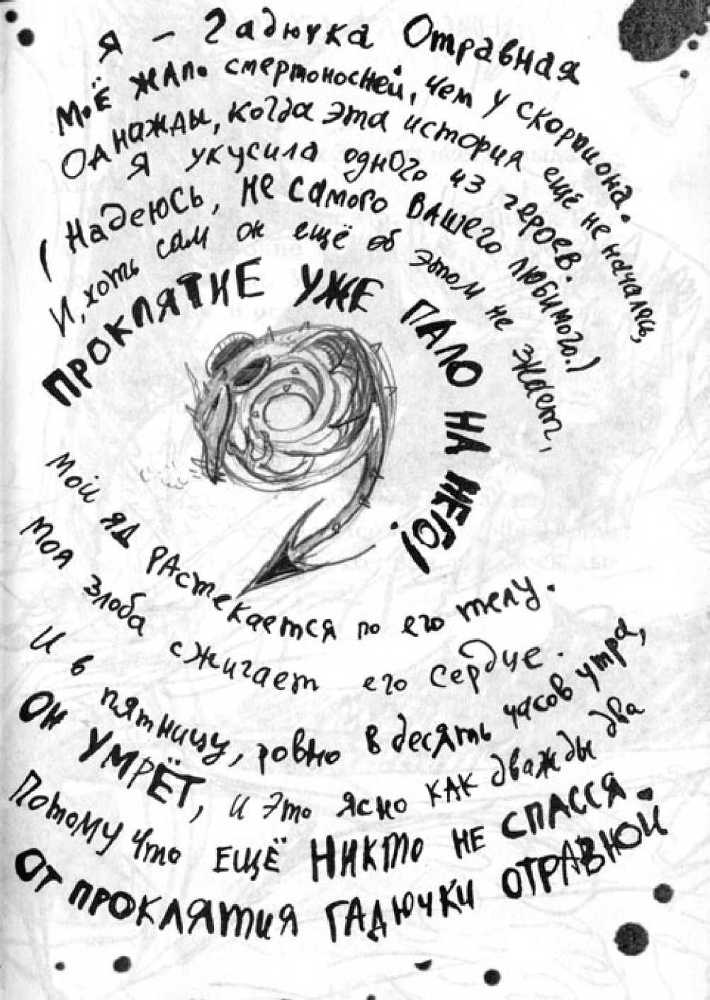 Я - Гадючка Отравная
Моё жало смертоносней, чем у скорпиона.
Однажды, когда эта история ещё не началась,
Я укусила одного из героев.
(Надеюсь, не самого вашего любимого.)
И, хоть сам он ещё об этом не знает,
ПРОКЛЯТИЕ УЖЕ ПАЛО НА НЕГО!
Мой яд растекается по его телу.
Моя злоба сжигает его сердце.
И в пятницу, ровно в десять часов утра,
ОН УМРЁТ, и это ясно как дважды два
Потому что ЕЩЁ НИКТО НЕ СПАССЯ.
ОТ ПРОКЛЯТИЯ ГАДЮЧКИ ОТРАВНОЙ